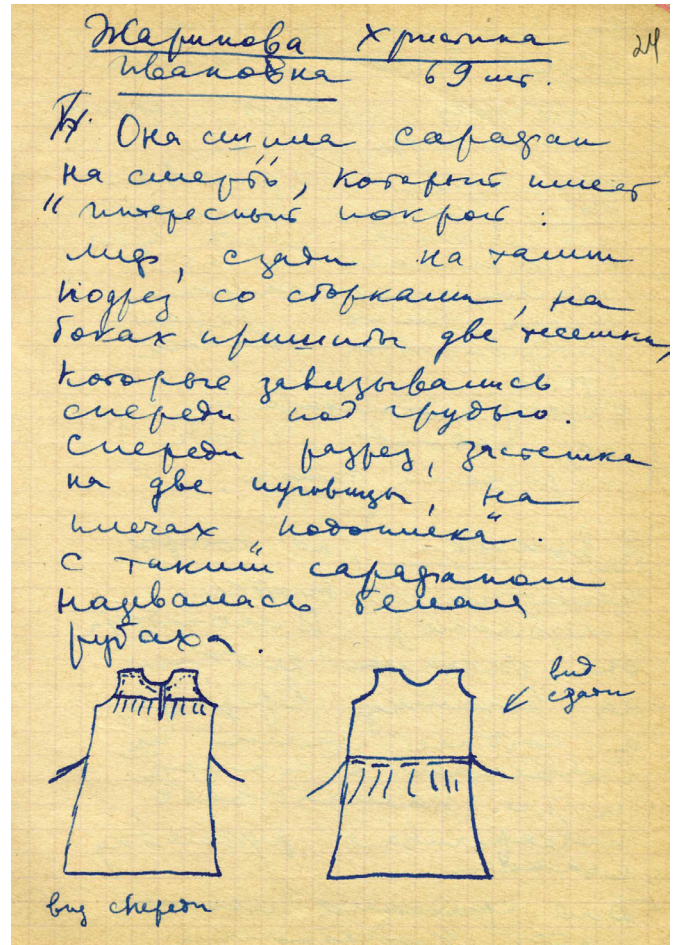 Жаринова Христина 24
Ивановна 69 лет.
IV. Она сшила сарафан
"на смерть", который имеет
интересный покрой:
лиф, сзади на талии
подрез со сборками, на
боках пришиты две тесёмки,
которые завязывались
спереди под грудью.
Спереди разрез, застёжка
на две пуговицы, на
плечах "подоплёка".
С таким сарафаном
надевалась белая
рубаха.
вид
сзади
вид спереди